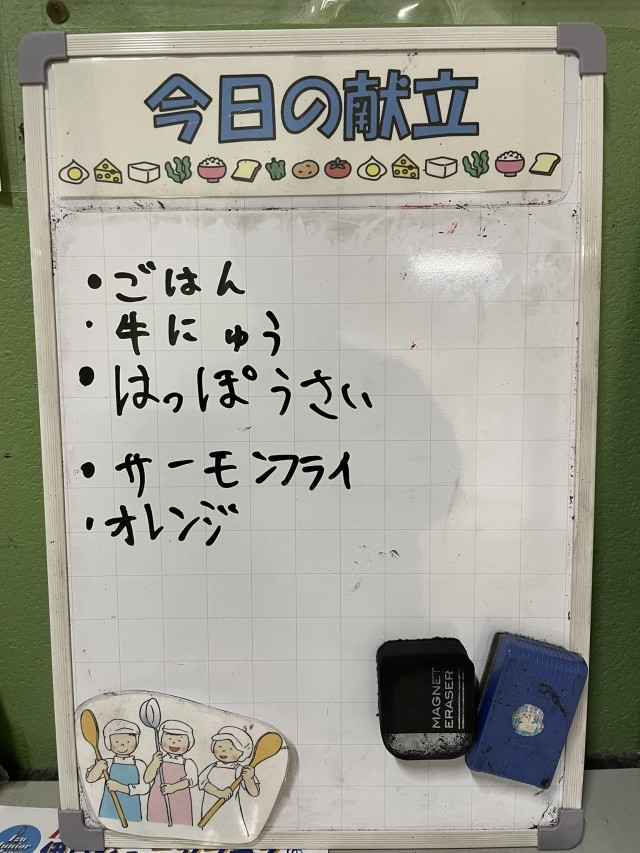 今日の献立
・ごはん
・牛にゅう
・はっぽうさい
・サーモンフライ
・オレンジ
MAGNET
ERASER